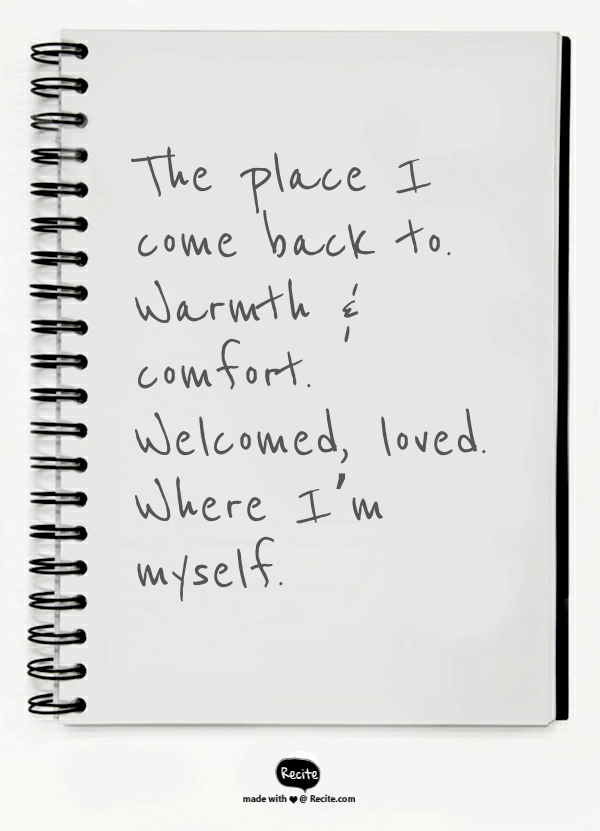 The place I
come back to.
Warmth &
comfort.
Welcomed, loved.
Where I'm
myself.
Recite
made with ♥ @ Recite.com